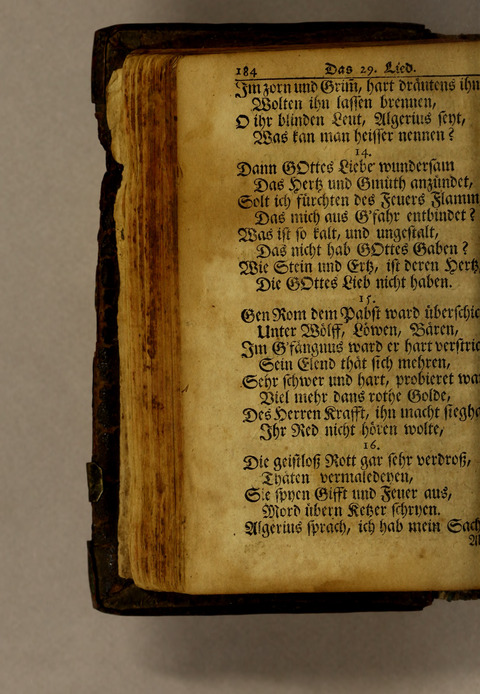 184 Das 29. Lied.
Im zorn und Grim̃, hart dräutens ihn
Wolten ihn lassen brennen,
O ihr blinden Leut, Algerius seyt,
Was kan man heisser nennen?
14.
Dann GOttes Liebe wundersam
Das Hertz und Gmüth anzündet,
Solt ich fürchten des Feuers Flamm
Das mich aus G'fahr entbindet?
Was ist so kalt, und ungestalt,
Das nicht hab GOttes Gaben?
Wie Stein und Ertz, ist deren Hertz
Die GOttes Lieb nicht haben.
15.
Gen Rom dem Pabst ward überschic
Unter Wölff, Löwen, Bären,
Im G'fängnus ward er hart verstric
Sein Elend thät sich mehren,
Sehr schwer und hart, probieret wa
Viel mehr dans rothe Golde,
Des Herren Krafft, ihn macht siegha
Ihr Red nicht hören wolte,
16.
Die geistloß Rott gar sehr verdroß,
Thäten vermaledeyen,
Sie spyen Gifft und Feuer aus,
Mord übern Ketzer schryen.
Algerius sprach, ich hab mein Sach
Al